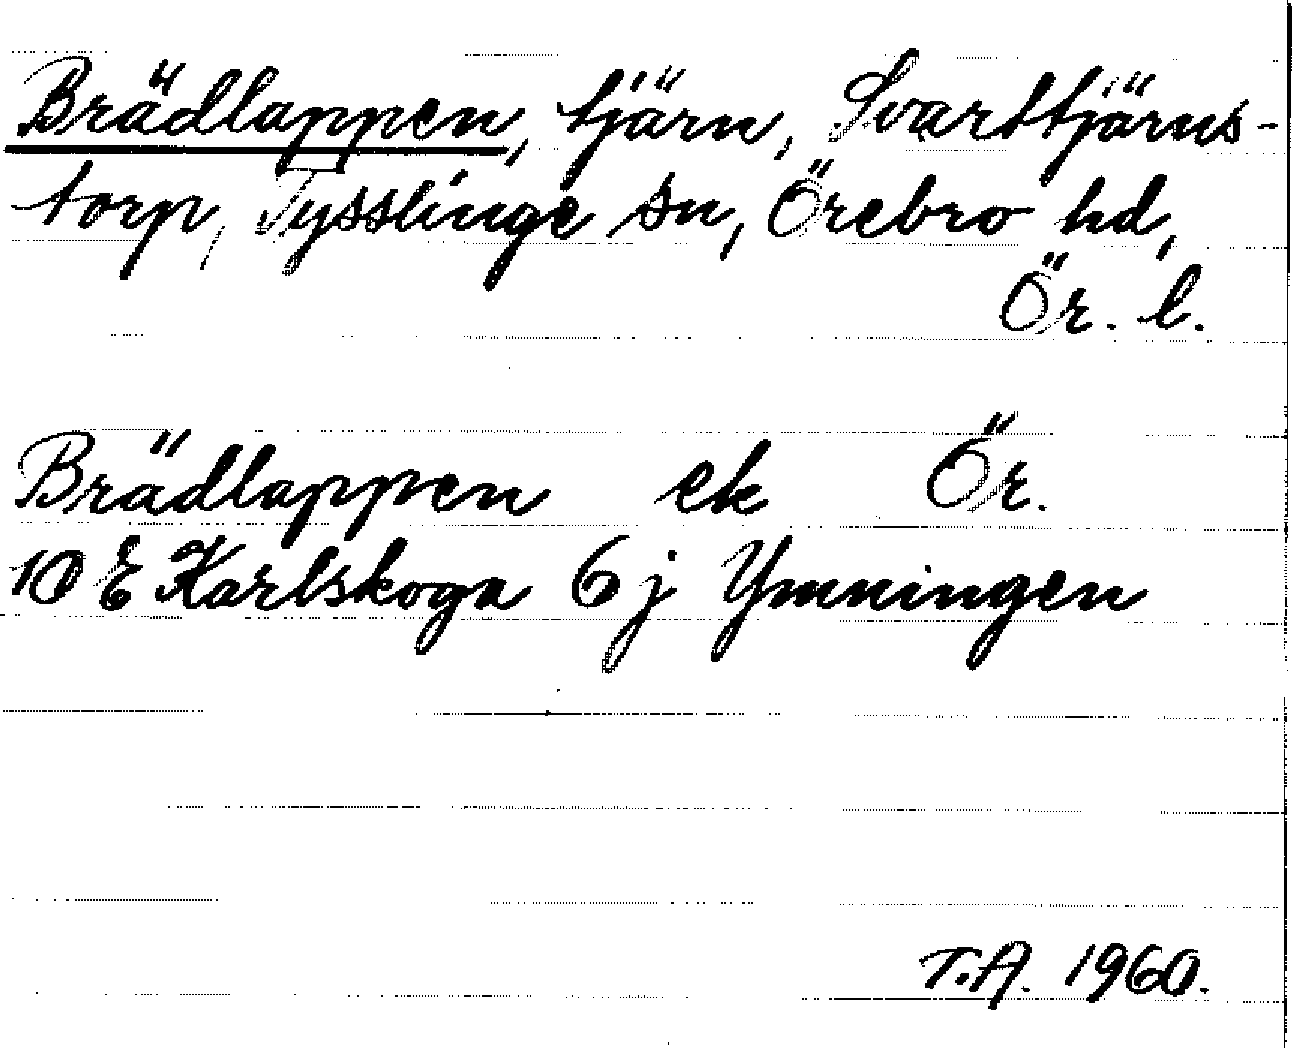 Brädlappen, tjärn, Svarttjärns-
torp, Tysslinge sn, Örebro hd,
Ör. l.
Brädlappen ek Ör.
10 E Karlskoga 6 j Ymningen
T.A. 1960.